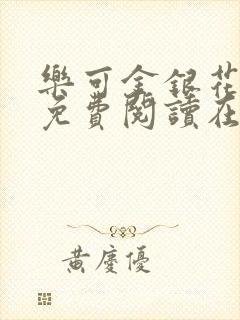 樂可金銀花
免費閱讀在
黃慶優